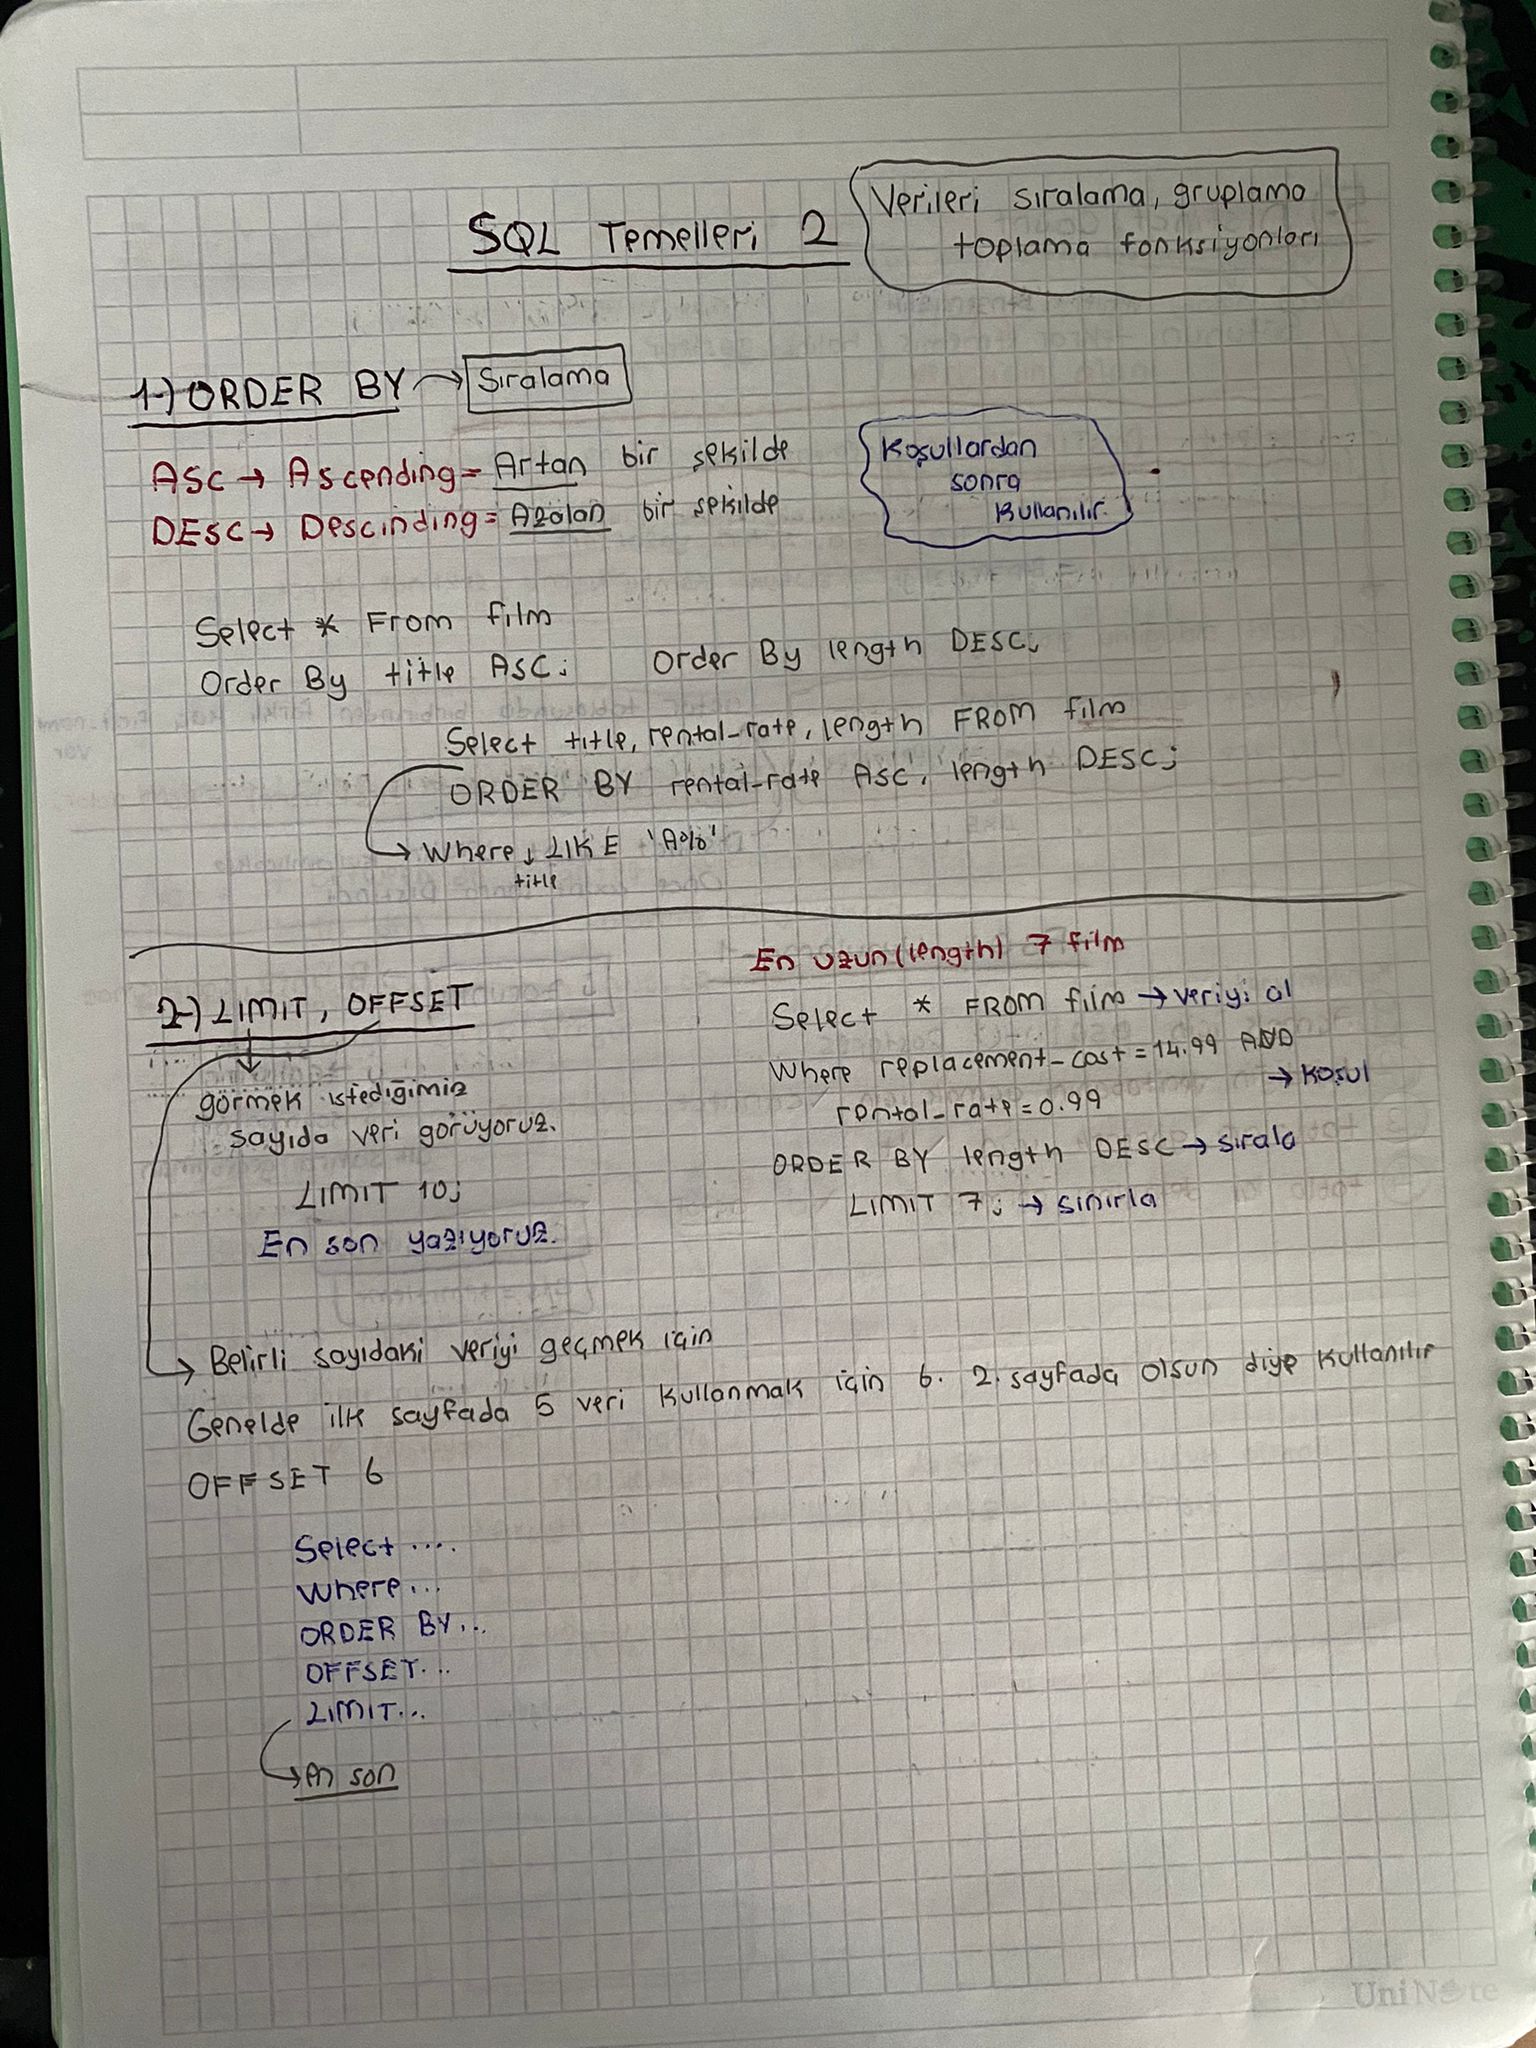 SQL Temelleri 2
Verileri sıralama, gruplama
toplama fonksiyonları
1-) ORDER BY → Sıralama
ASC → Ascending = Artan bir şekilde
DESC → Descinding = Azalan bir şekilde
Koşullardan
sonra
kullanılır.
Select * From film
Order By title ASC; Order By length DESC;
Select title, rental_rate, length FROM film
ORDER BY rental_rate ASC, length DESC;
→ Where ↓ LIKE 'A%'
title
2-) LIMIT, OFFSET
görmek istediğimiz
sayıda veri görüyoruz.
LIMIT 10;
En son yazıyoruz.
En uzun (length) 7 film
Select * FROM film → veriyi al
Where replacement_cost = 14.99 AND
→ koşul
rental_rate = 0.99
ORDER BY length DESC → sırala
LIMIT 7; → sınırla
→ Belirli sayıdaki veriyi geçmek için
Genelde ilk sayfada 5 veri kullanmak için 6. 2. sayfada olsun diye kullanılır
OFFSET 6
Select ....
Where...
ORDER BY...
OFFSET...
LIMIT...
→ en son
UniNote